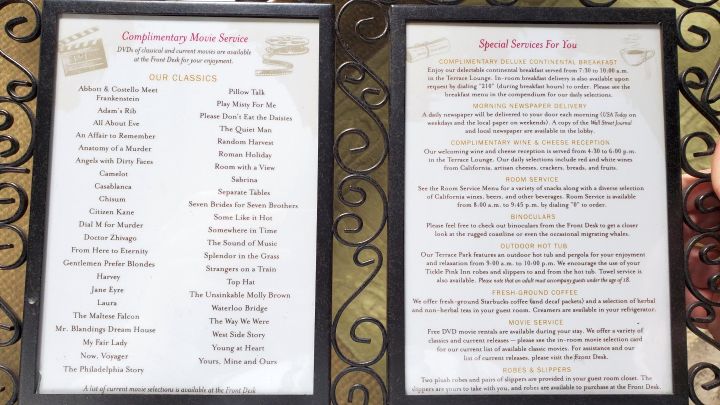 Complimentary Movie Service
DVDs of classical and current movies are available
at the Front Desk for your enjoyment.
OUR CLASSICS
Abbott & Costello Meet
Frankenstein
Adam's Rib
All About Eve
An Affair to Remember
Anatomy of a Murder
Angels with Dirty Faces
Camelot
Casablanca
Chisum
Citizen Kane
Dial M for Murder
Doctor Zhivago
From Here to Eternity
Gentlemen Prefer Blondes
Harvey
Jane Eyre
Laura
The Maltese Falcon
Mr. Blandings Dream House
My Fair Lady
Now, Voyager
The Philadelphia Story
Pillow Talk
Play Misty For Me
Please Don't Eat the Daisies
The Quiet Man
Random Harvest
Roman Holiday
Room with a View
Sabrina
Separate Tables
Seven Brides for Seven Brothers
Some Like it Hot
Somewhere in Time
The Sound of Music
Splendor in the Grass
Strangers on a Train
Top Hat
The Unsinkable Molly Brown
Waterloo Bridge
The Way We Were
West Side Story
Young at Heart
Yours, Mine and Ours
A list of current movie selections is available at the Front Desk
Special Services For You
COMPLIMENTARY DELUXE CONTINENTAL BREAKFAST
Enjoy our delectable continental breakfast served from 7:30 to 10:00 a.m.
in the Terrace Lounge. In-room breakfast delivery is also available upon
request by dialing "210" (during breakfast hours) to order. Please see the
breakfast menu in the compendium for our daily selections.
MORNING NEWSPAPER DELIVERY
A daily newspaper will be delivered to your door each morning (USA Today on
weekdays and the local paper on weekends). A copy of the Wall Street Journal
and local newspaper are available in the lobby.
COMPLIMENTARY WINE & CHEESE RECEPTION
Our welcoming wine and cheese reception is served from 4:30 to 6:00 p.m.
in the Terrace Lounge. Our daily selections include red and white wines
from California, artisan cheeses, crackers, breads, and fruits.
ROOM SERVICE
See the Room Service Menu for a variety of snacks along with a diverse selection
of California wines, beers, and other beverages. Room Service is available
from 8:00 a.m. to 9:45 p.m. by dialing "0" to order.
BINOCULARS
Please feel free to check out binoculars from the Front Desk to get a closer
look at the rugged coastline or even the occasional migrating whales.
OUTDOOR HOT TUB
Our Terrace Park features an outdoor hot tub and pergola for your enjoyment
and relaxation from 9:00 a.m. to 10:00 p.m. We encourage the use of your
Tickle Pink Inn robes and slippers to and from the hot tub. Towel service is
also available. Please note that an adult must accompany guests under the age of 18.
FRESH-GROUND COFFEE
We offer fresh-ground Starbucks coffee (and decaf packets) and a selection of herbal
and non-herbal teas in your guest room. Creamers are available in your refrigerator.
MOVIE SERVICE
Free DVD movie rentals are available during your stay. We offer a variety of
classics and current releases – please see the in-room movie selection card
for our current list of available classic movies. For assistance and our
list of current releases, please visit the Front Desk.
ROBES & SLIPPERS
Two plush robes and pairs of slippers are provided in your guest room closet. The
slippers are yours to take with you, and robes are available to purchase at the Front Desk.